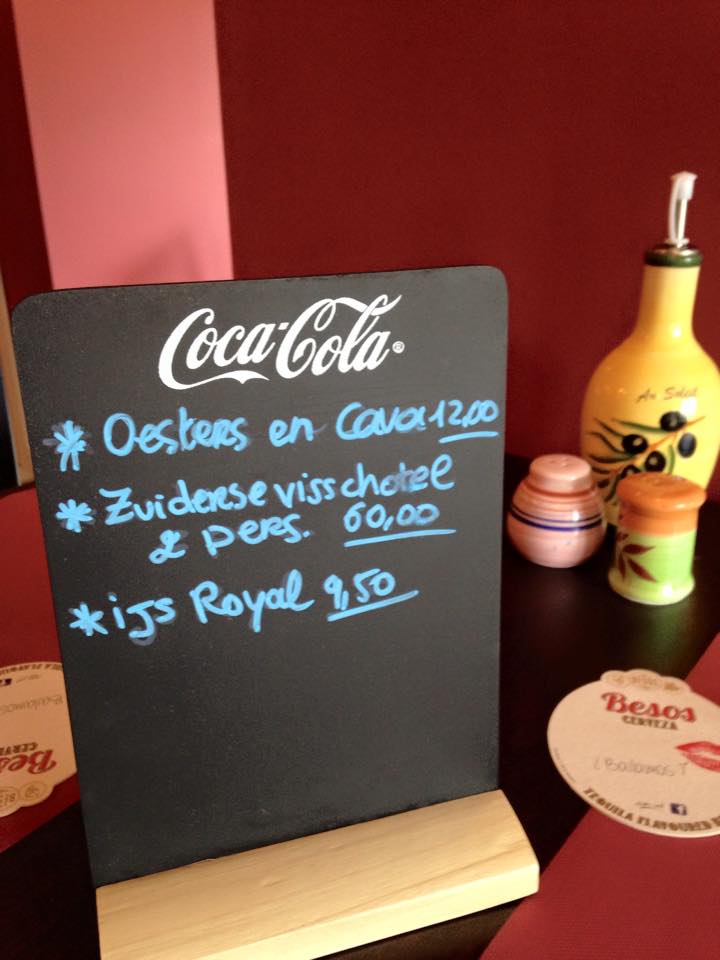 Coca-Cola®
* Oesters en Cava 12,00
* Zuiderse visschotel
2 pers. 60,00
* ijs Royal 9,50
Au Soleil
Besos
CERVEZA
¿Bailamos?
TEQUILA FLAVOURED
Besos
CERV
Bailamos